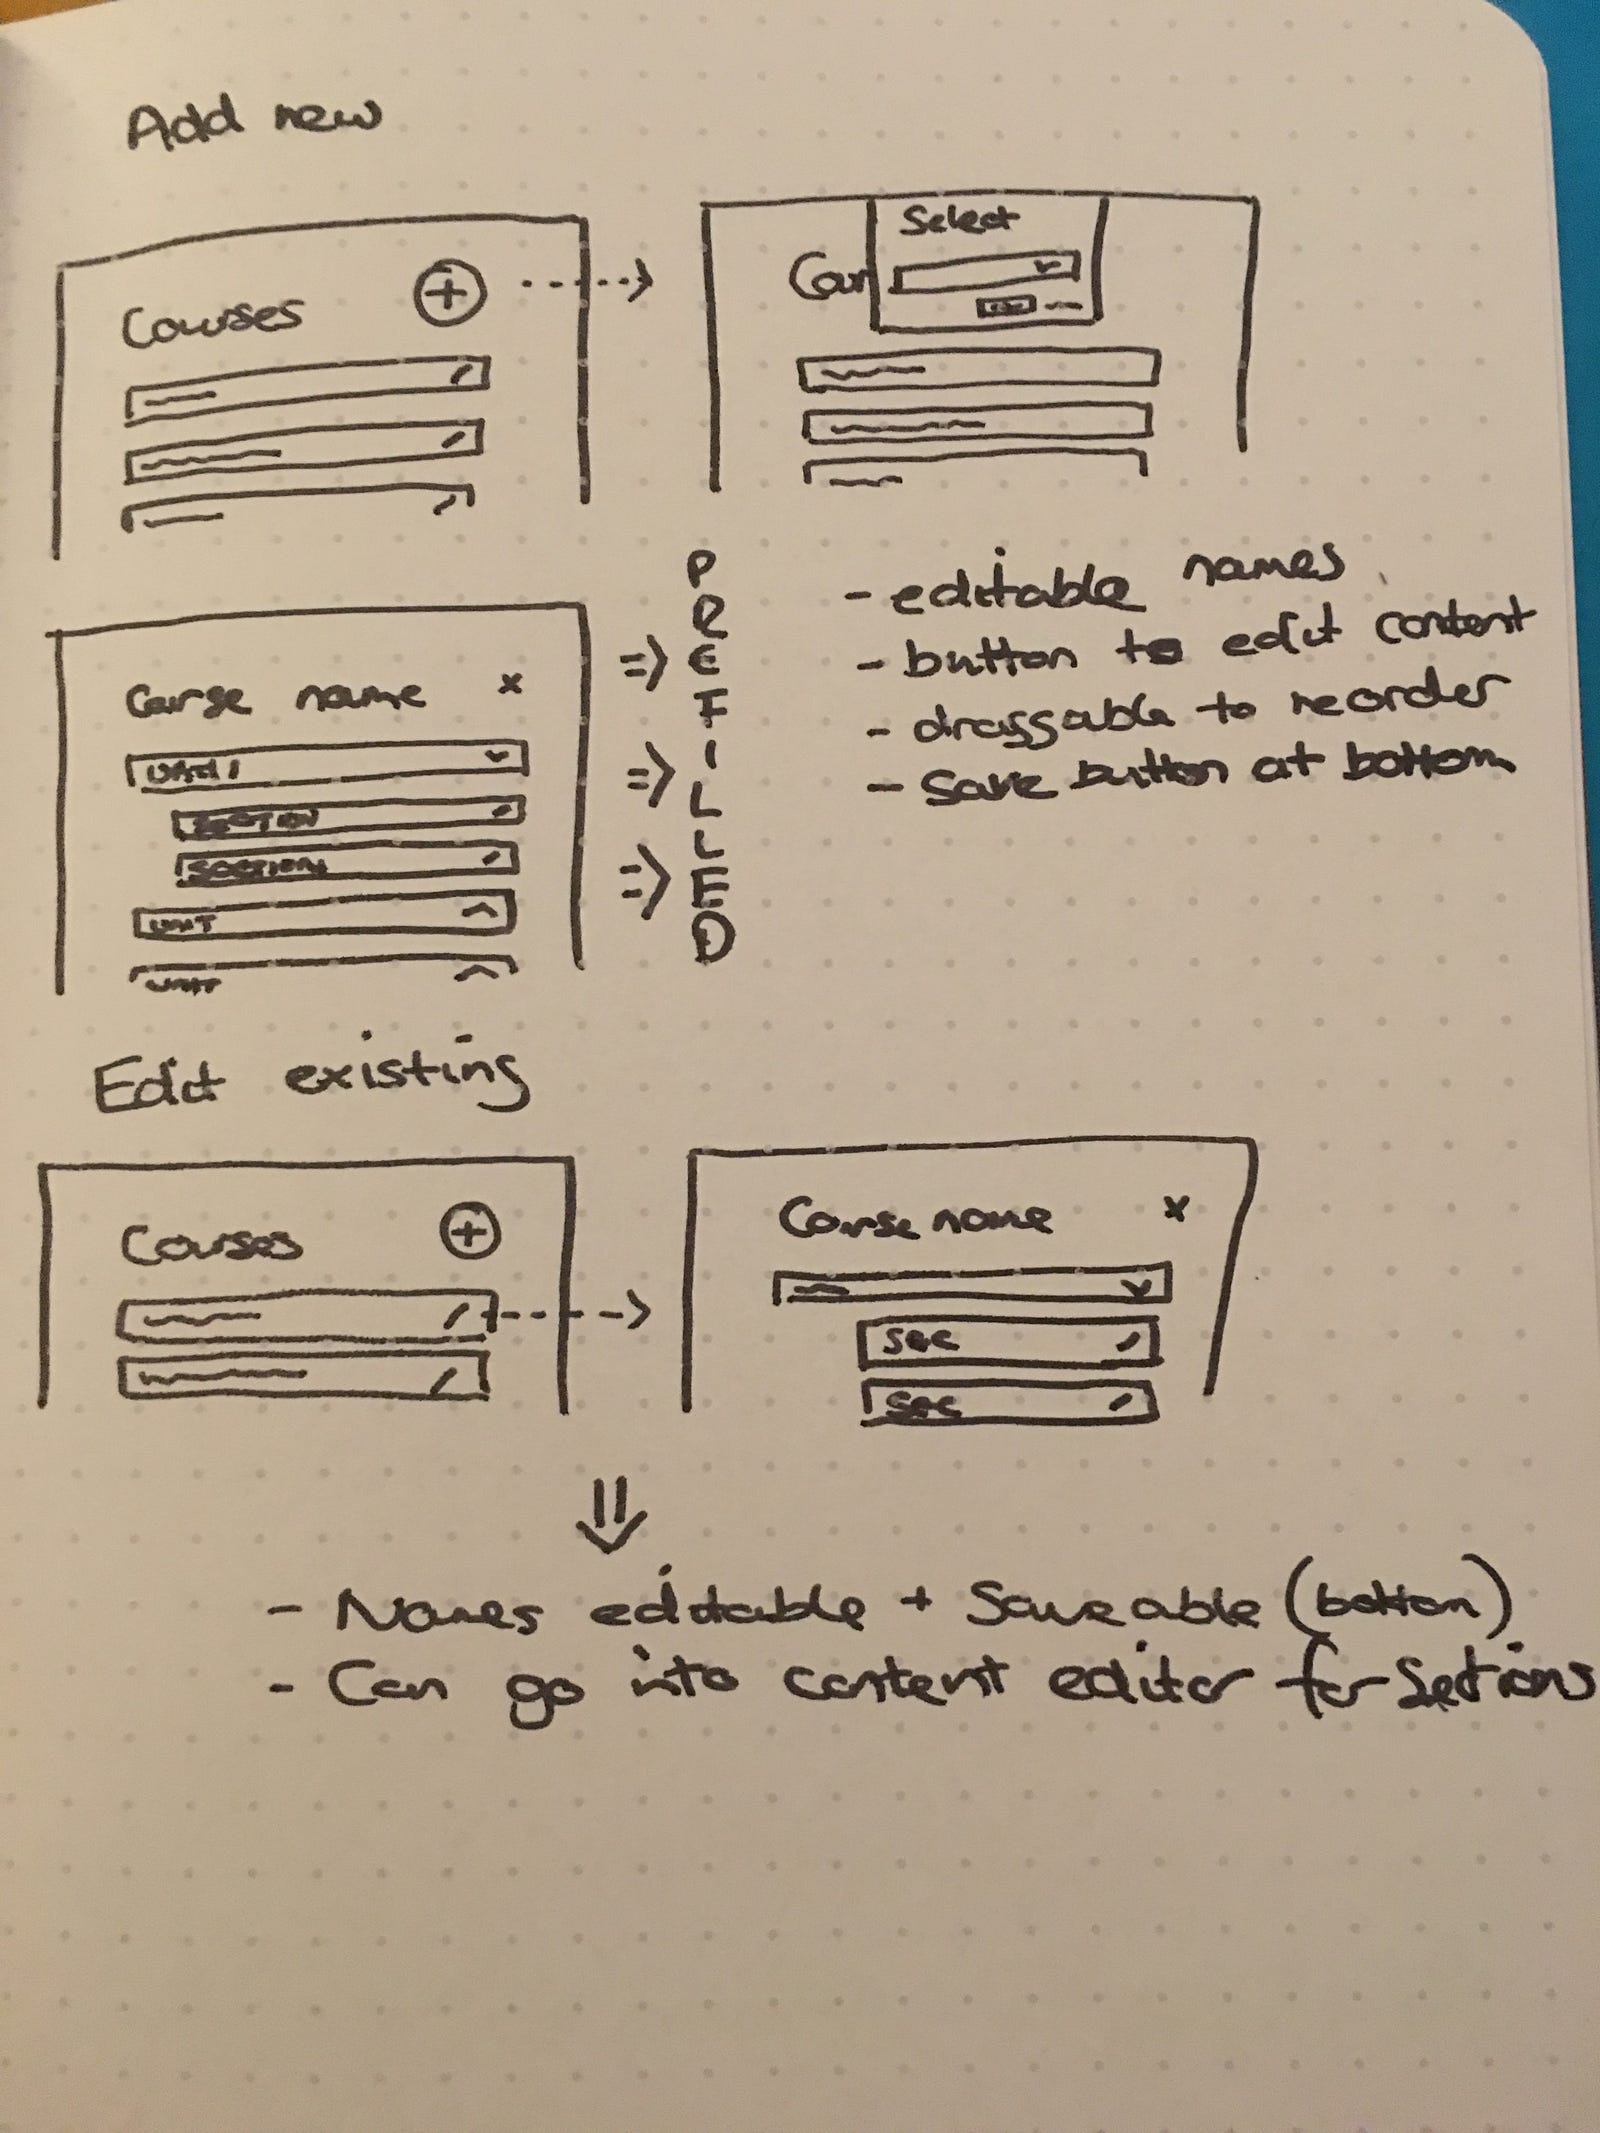 Add new
Courses
Select
Cour
PREFILLED
- editable names
- button to edit content
- draggable to reorder
- Save button at bottom
Course name x
UNIT 1
SECTION
SECTION
UNIT
UNIT
Edit existing
Courses
Course name x
Sec
Sec
- Names editable + Saveable (bottom)
- Can go into content editor for Setions